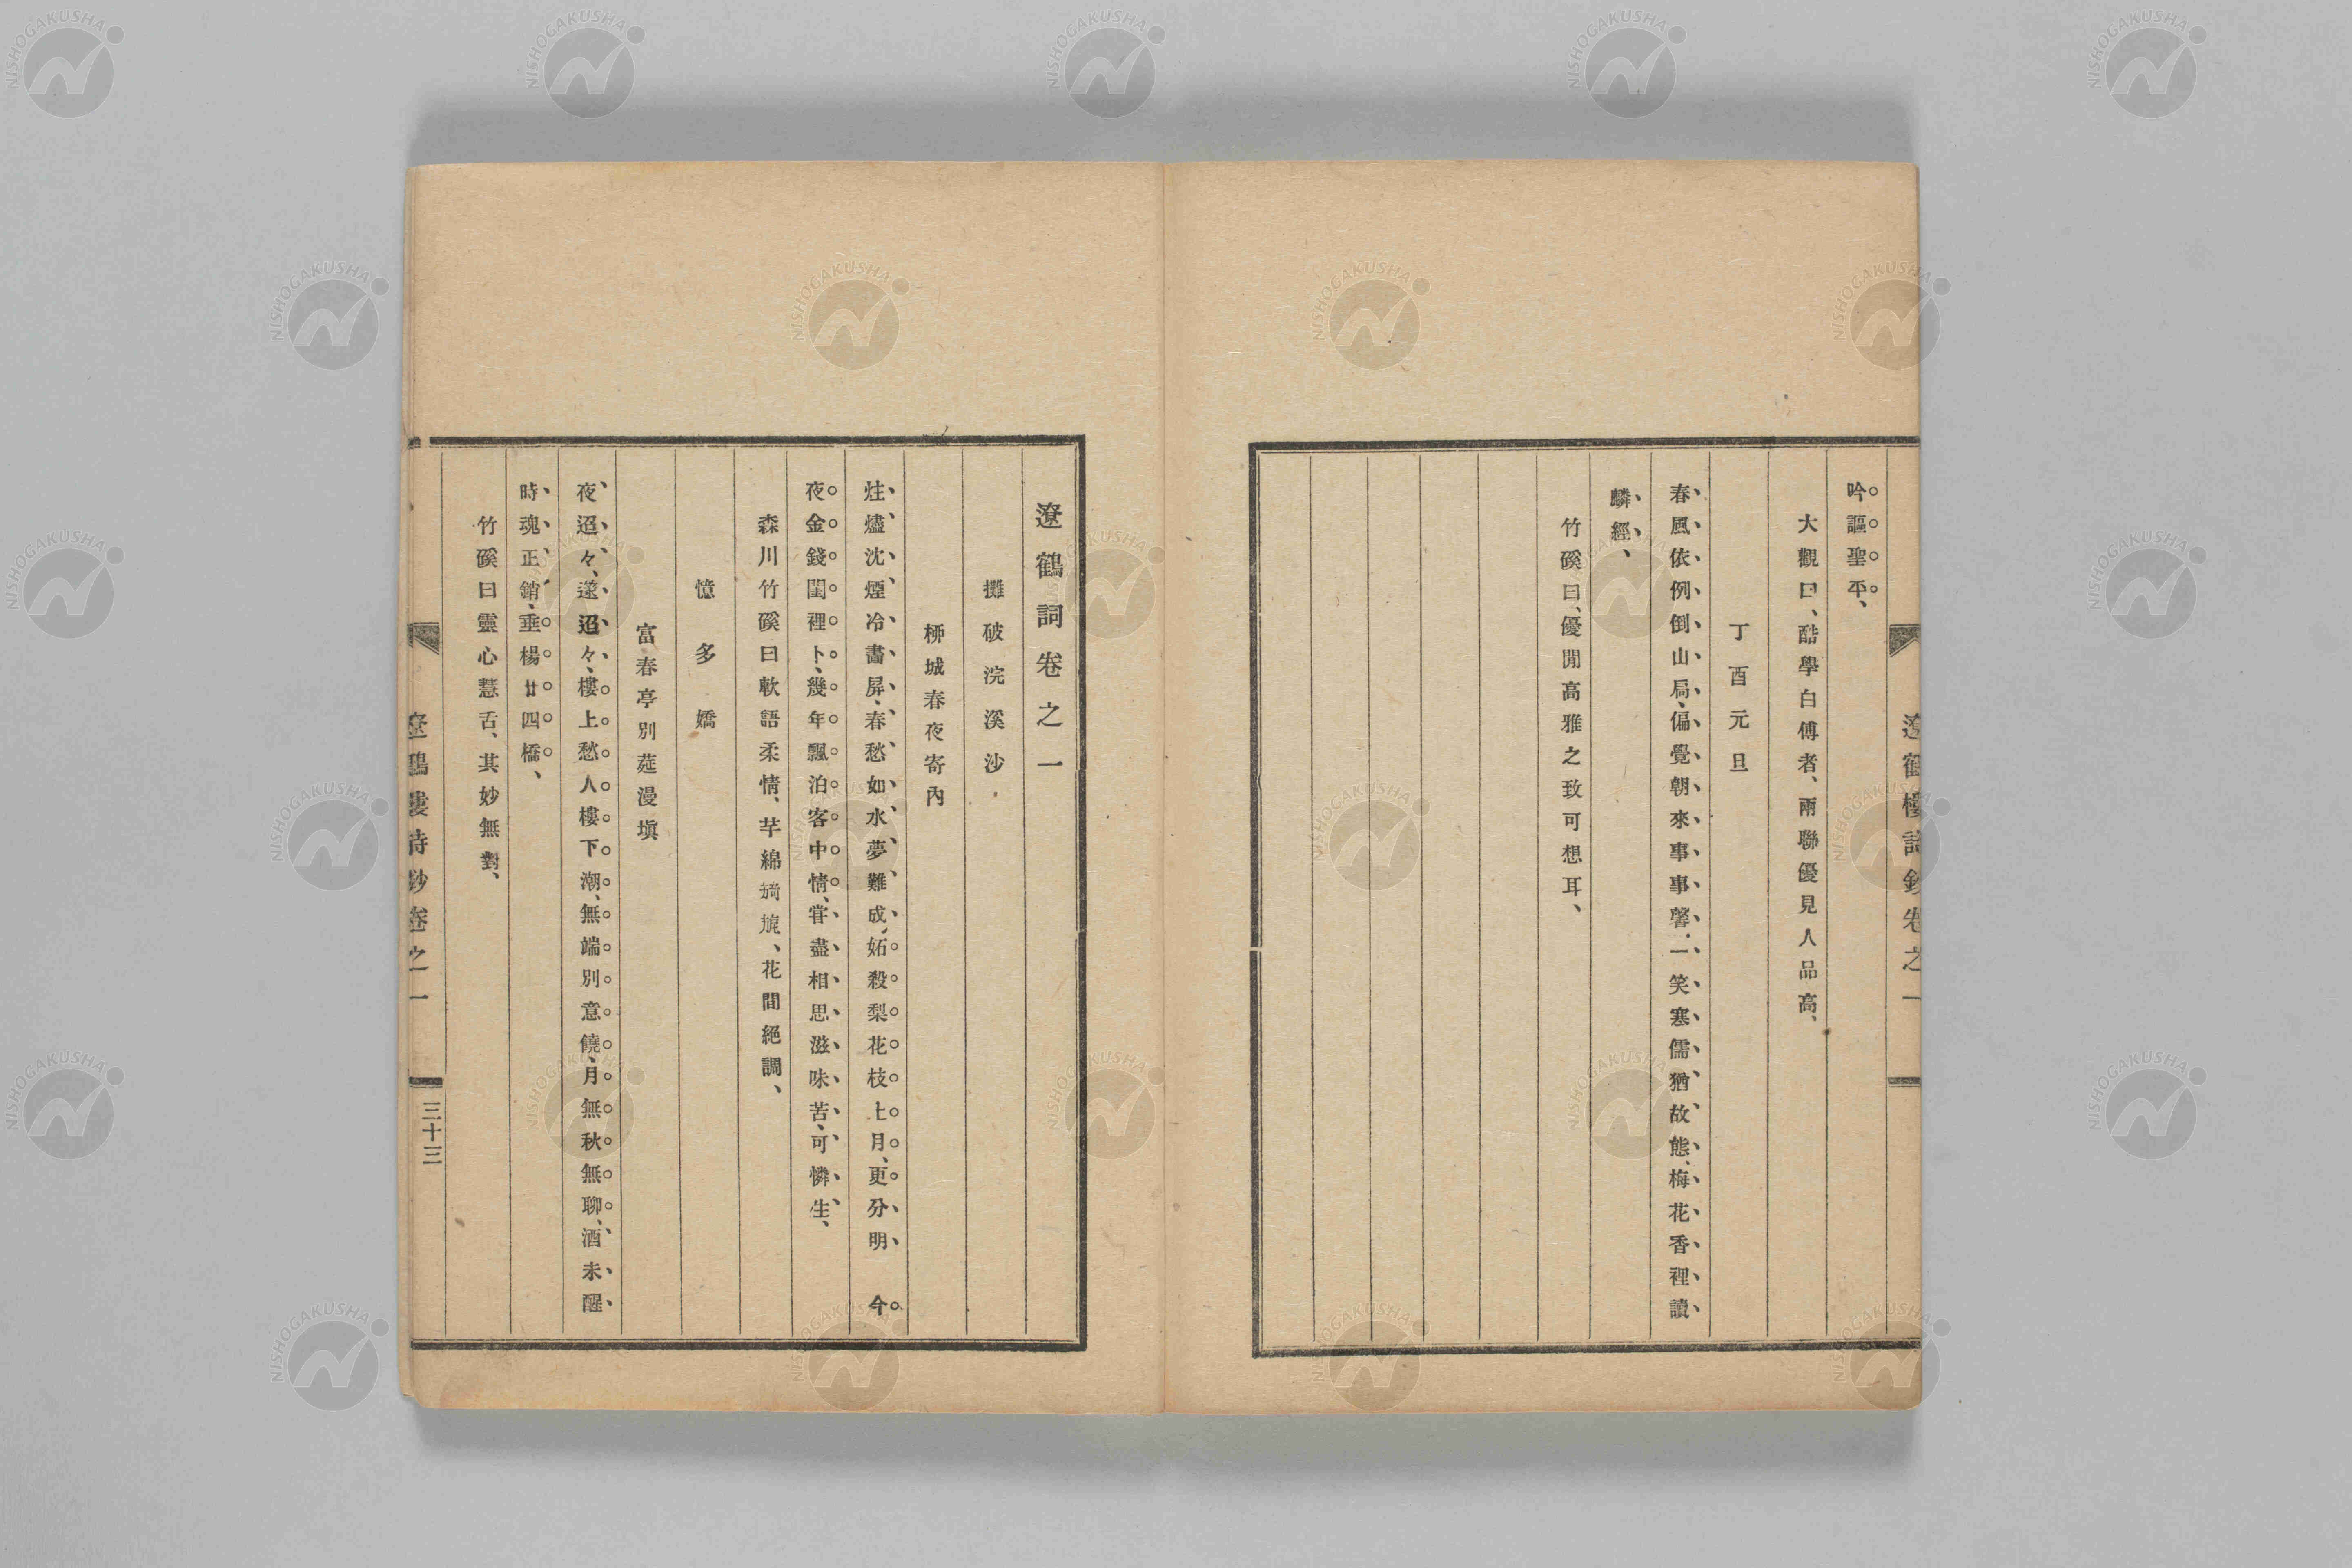 吟謳聖平、
大觀曰、酷學白傅者、兩聯優見人品高、
丁酉元旦
春風依例倒山扃、偏覺朝來事事馨、一笑寒儒猶故態、梅花香裡讀
麟經、
竹磎曰、優閒高雅之致可想耳、
遼鶴樓詩鈔卷之一
遼鶴詞卷之一
攤破浣溪沙
柳城春夜寄內
炷燼沈煙冷畵屏、春愁如水夢難成、妬殺梨花枝上月、更分明　今
夜金錢閨裡卜、幾年飄泊客中情、甞盡相思滋味苦、可憐生、
森川竹磎曰軟語柔情、芊綿旖旎、花間絕調、
憶多嬌
富春亭別莚漫塡
夜迢々、遂迢々、樓上愁人樓下潮、無端別意饒、月無秋無聊、酒未醒
時魂正銷、垂楊廿四橋、
竹磎曰靈心慧舌、其妙無對、
遼鶴樓詩鈔卷之一
三十三
NISHOGAKUSHA